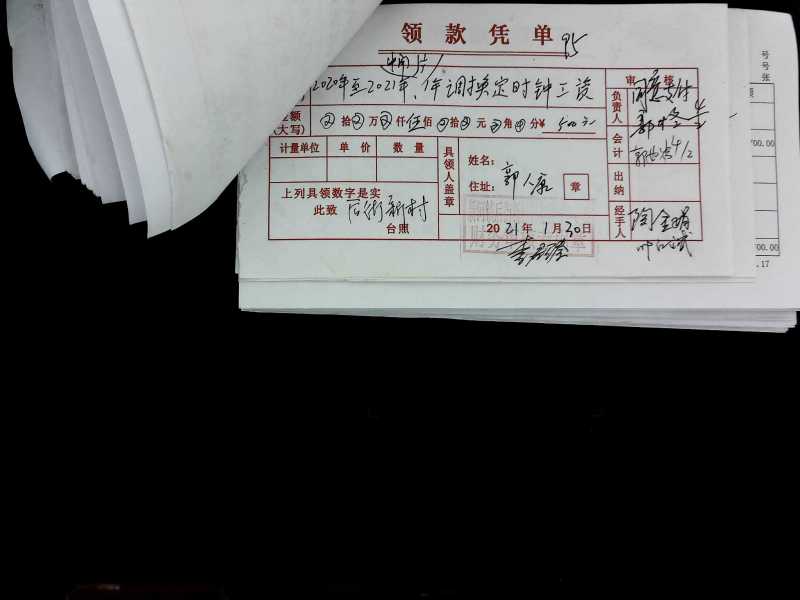 领款凭单
95
2020年至2021年、年调换定时钟工资
审核
同意支付
金额
(大写)
拾 万 仟 伍 佰 拾 元 角 分 ¥ 500元
负责人
计量单位 单价 数量
会计
4/2
具领人盖章
姓名:
住址:
郭
章
上列具领数字是实
此致 后街新村
台照
出纳
2021年1月30日
经手人
号
号
张
700.00
700.00
.17